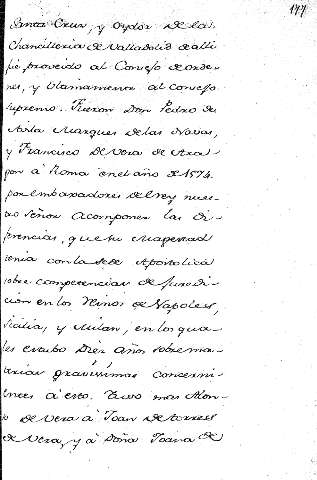 177
Santa Cruz, y Oydor de la
Chancilleria de Valladolid de alli
fue proveido al Consejo de orde-
nes, y ultimamente al consejo
supremo. Fueron Don Pedro de
Avila Marques de las Navas,
y Francisco De Vera de Ara-
gon à Roma en el año de 1574.
por embaxadores del rey nues-
tro señor à componer las di-
ferencias, que su Magestad
tenia con la sede Apostolica
sobre competencias de Juredi-
cion en los Reinos de Napoles,
Sicilia, y Milan, en los qua-
les estubo Diez años sobre ma-
terias gravissimas concerni-
entes à esto. Tuvo mas Alon-
so De Vera à Joan de torres
de Vera, y à Doña Joana de